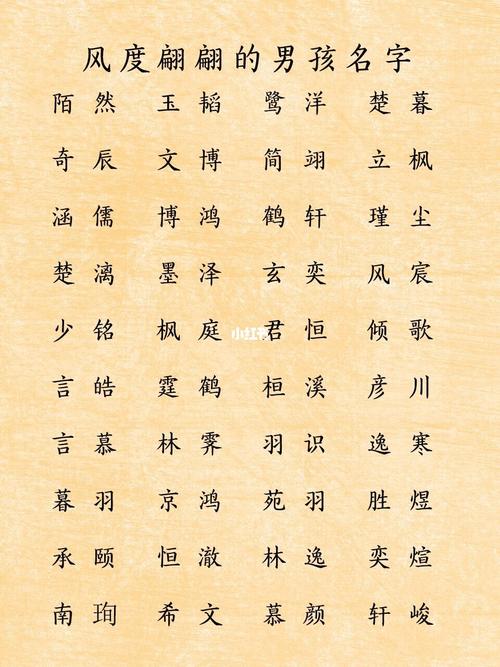 风度翩翩的男孩名字
陌然 玉韬 鹭洋 楚暮
奇辰 文博 简翊 立枫
涵儒 博鸿 鹤轩 瑾尘
楚漓 墨泽 玄奕 风宸
少铭 枫庭 君恒 倾歌
小红书
言皓 霆鹤 桓溪 彦川
言慕 林霁 羽识 逸寒
暮羽 京鸿 苑羽 胜煜
承颐 恒澈 林逸 奕煊
南珣 希文 慕颜 轩峻